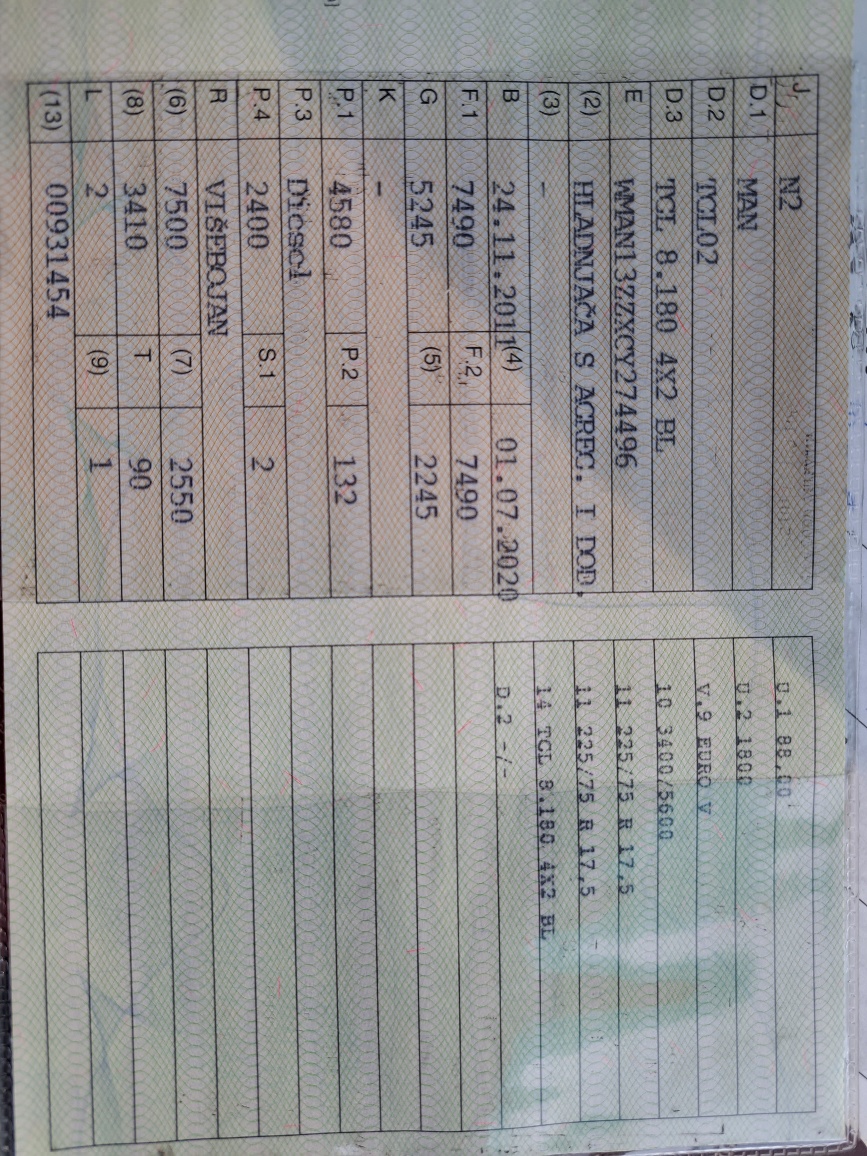 J N2
D.1 MAN
D.2 TGL02
D.3 TGL 8.180 4X2 BL
E WMAN13ZZXCY274496
(2) HLADNJAČA S AGREG. I DOD.
(3) -
B 24.11.2011 (4) 01.07.2020
F.1 7490 F.2 7490
G 5245 (5) 2245
K -
P.1 4580 P.2 132
P.3 Diesel
P.4 2400 S.1 2
R VIŠEBOJAN
(6) 7500 (7) 2550
(8) 3410 T 90
L 2 (9) 1
(13) 00931454
U.1 88,00
U.2 1800
V.9 EURO V
10 3400/5600
11 225/75 R 17,5
11 225/75 R 17,5 -
14 TGL 8.180 4X2 BL
D.2 -/-